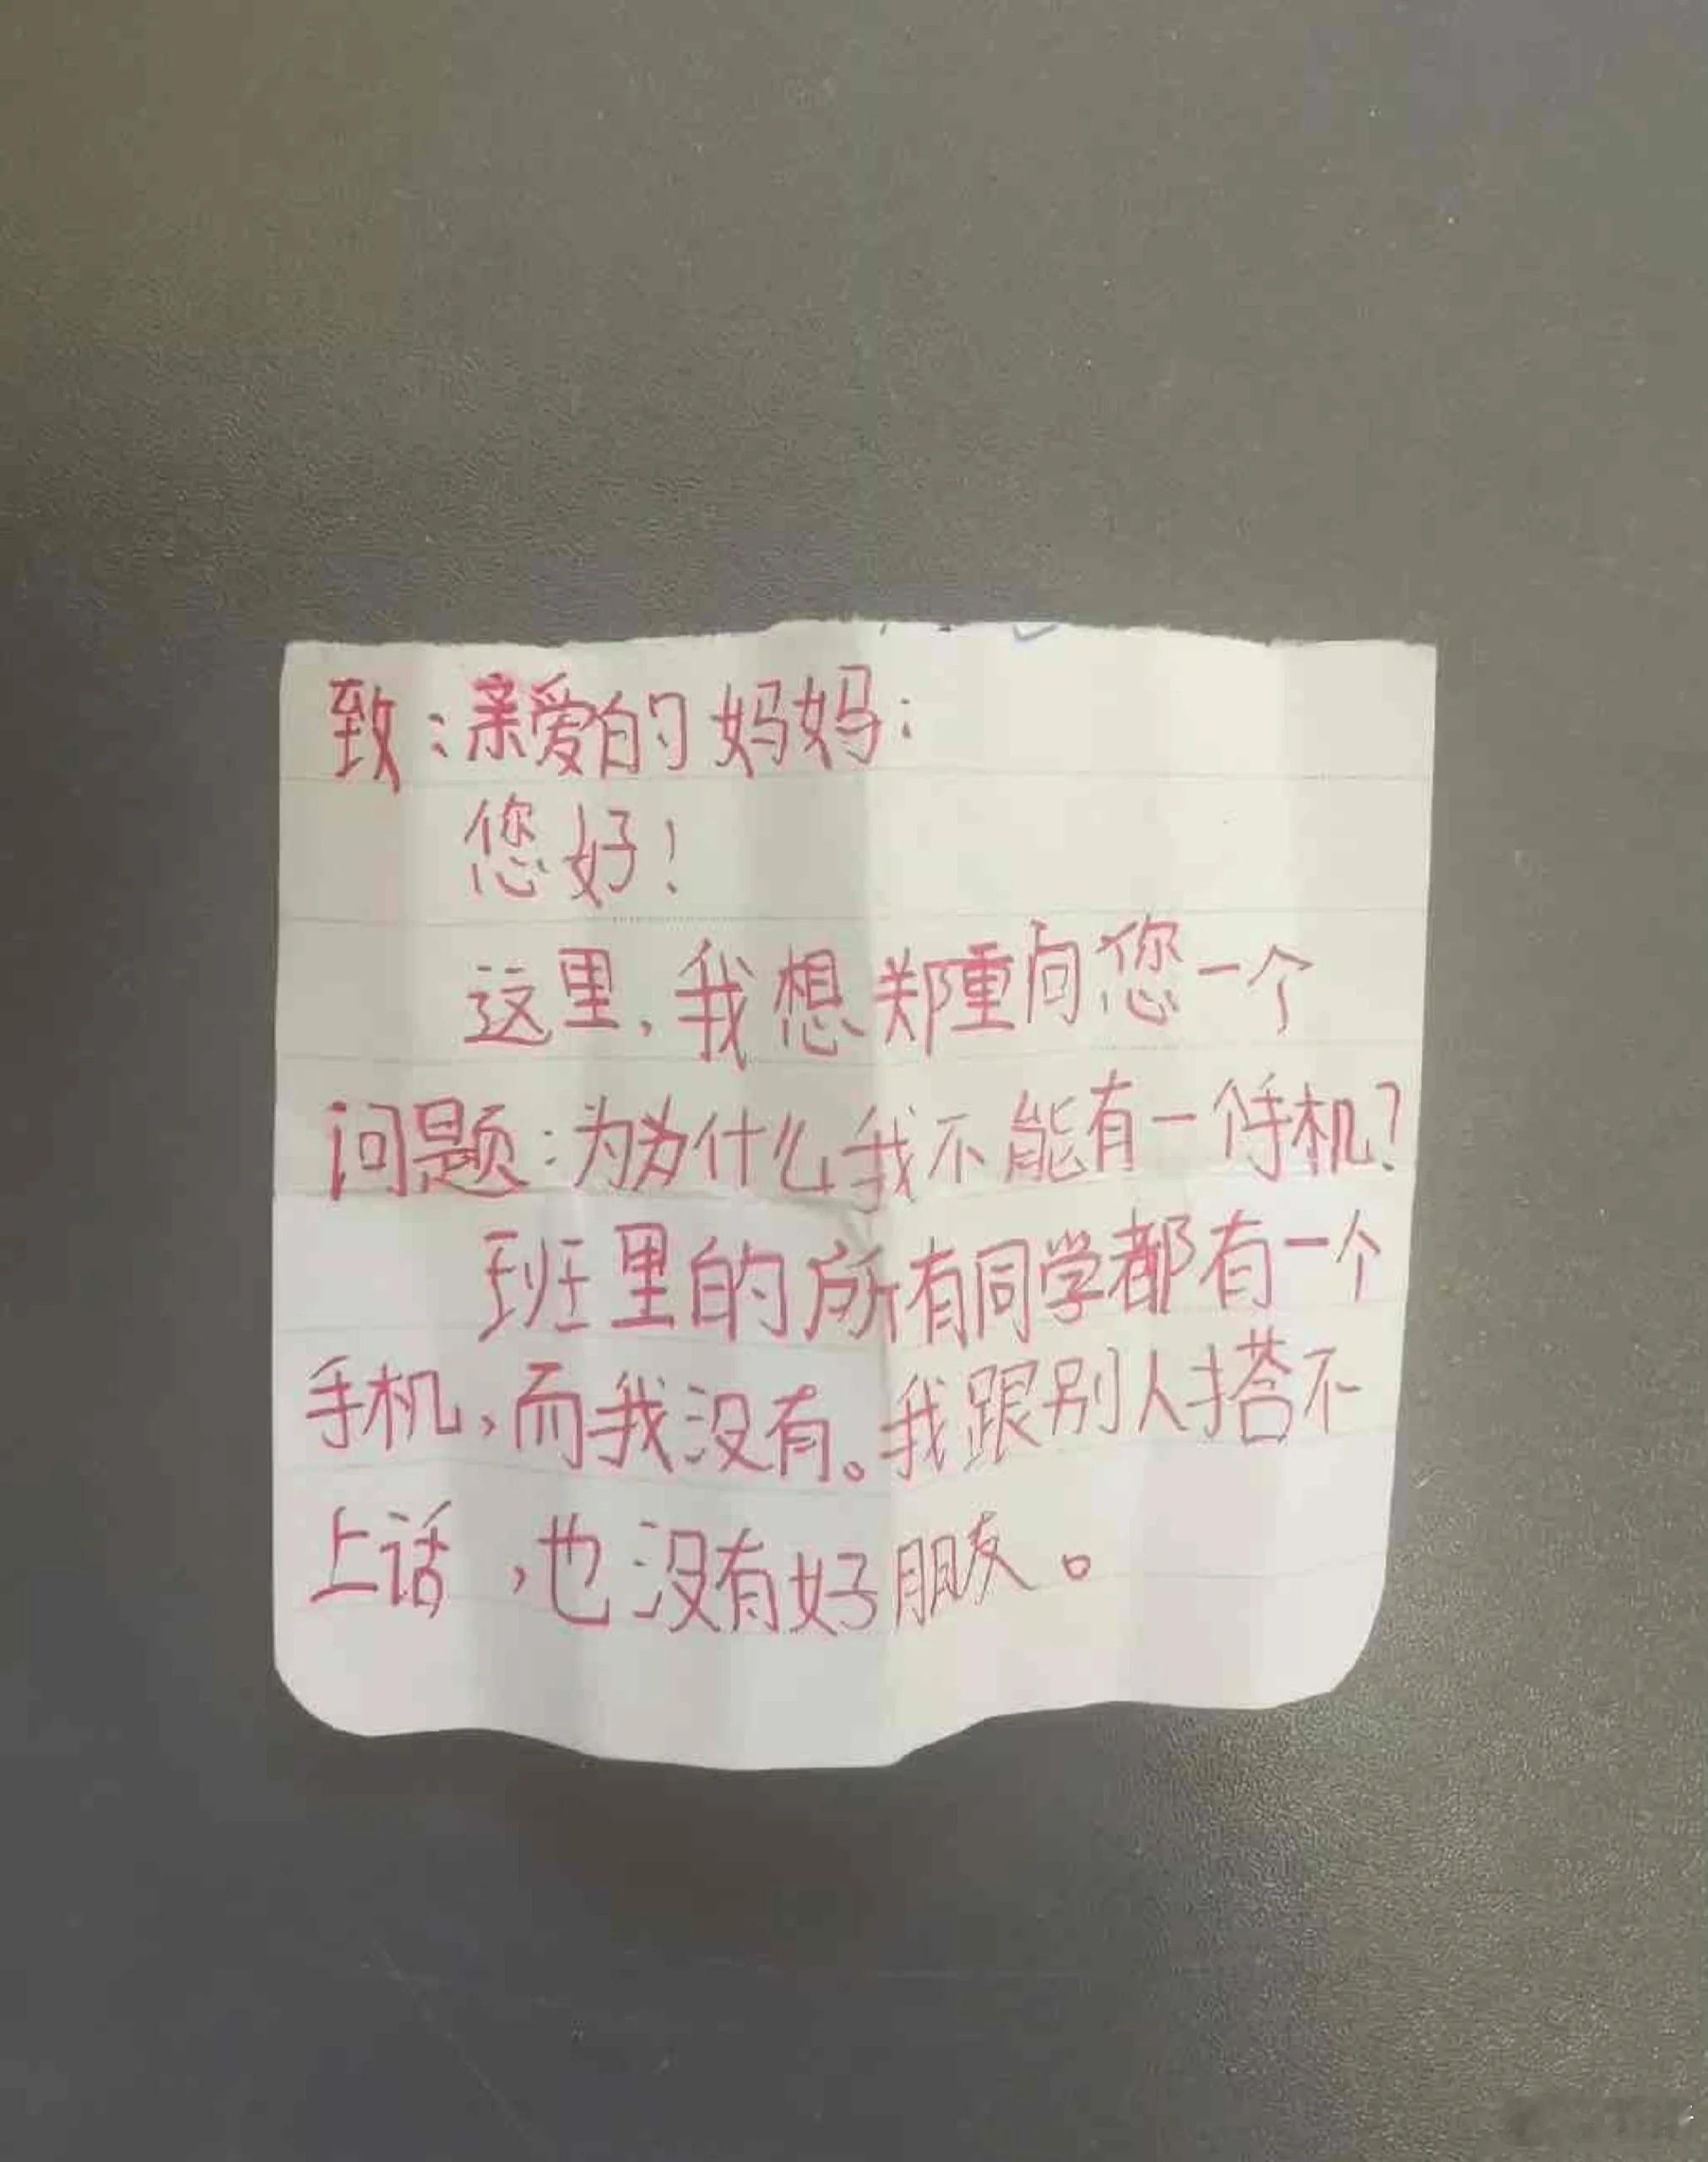 致：亲爱的妈妈：
您好！
这里，我想郑重向您一个
问题：为为什么我不能有一个手机？
班里的所有同学都有一个
手机，而我没有。我跟别人搭不
上话，也没有好朋友。